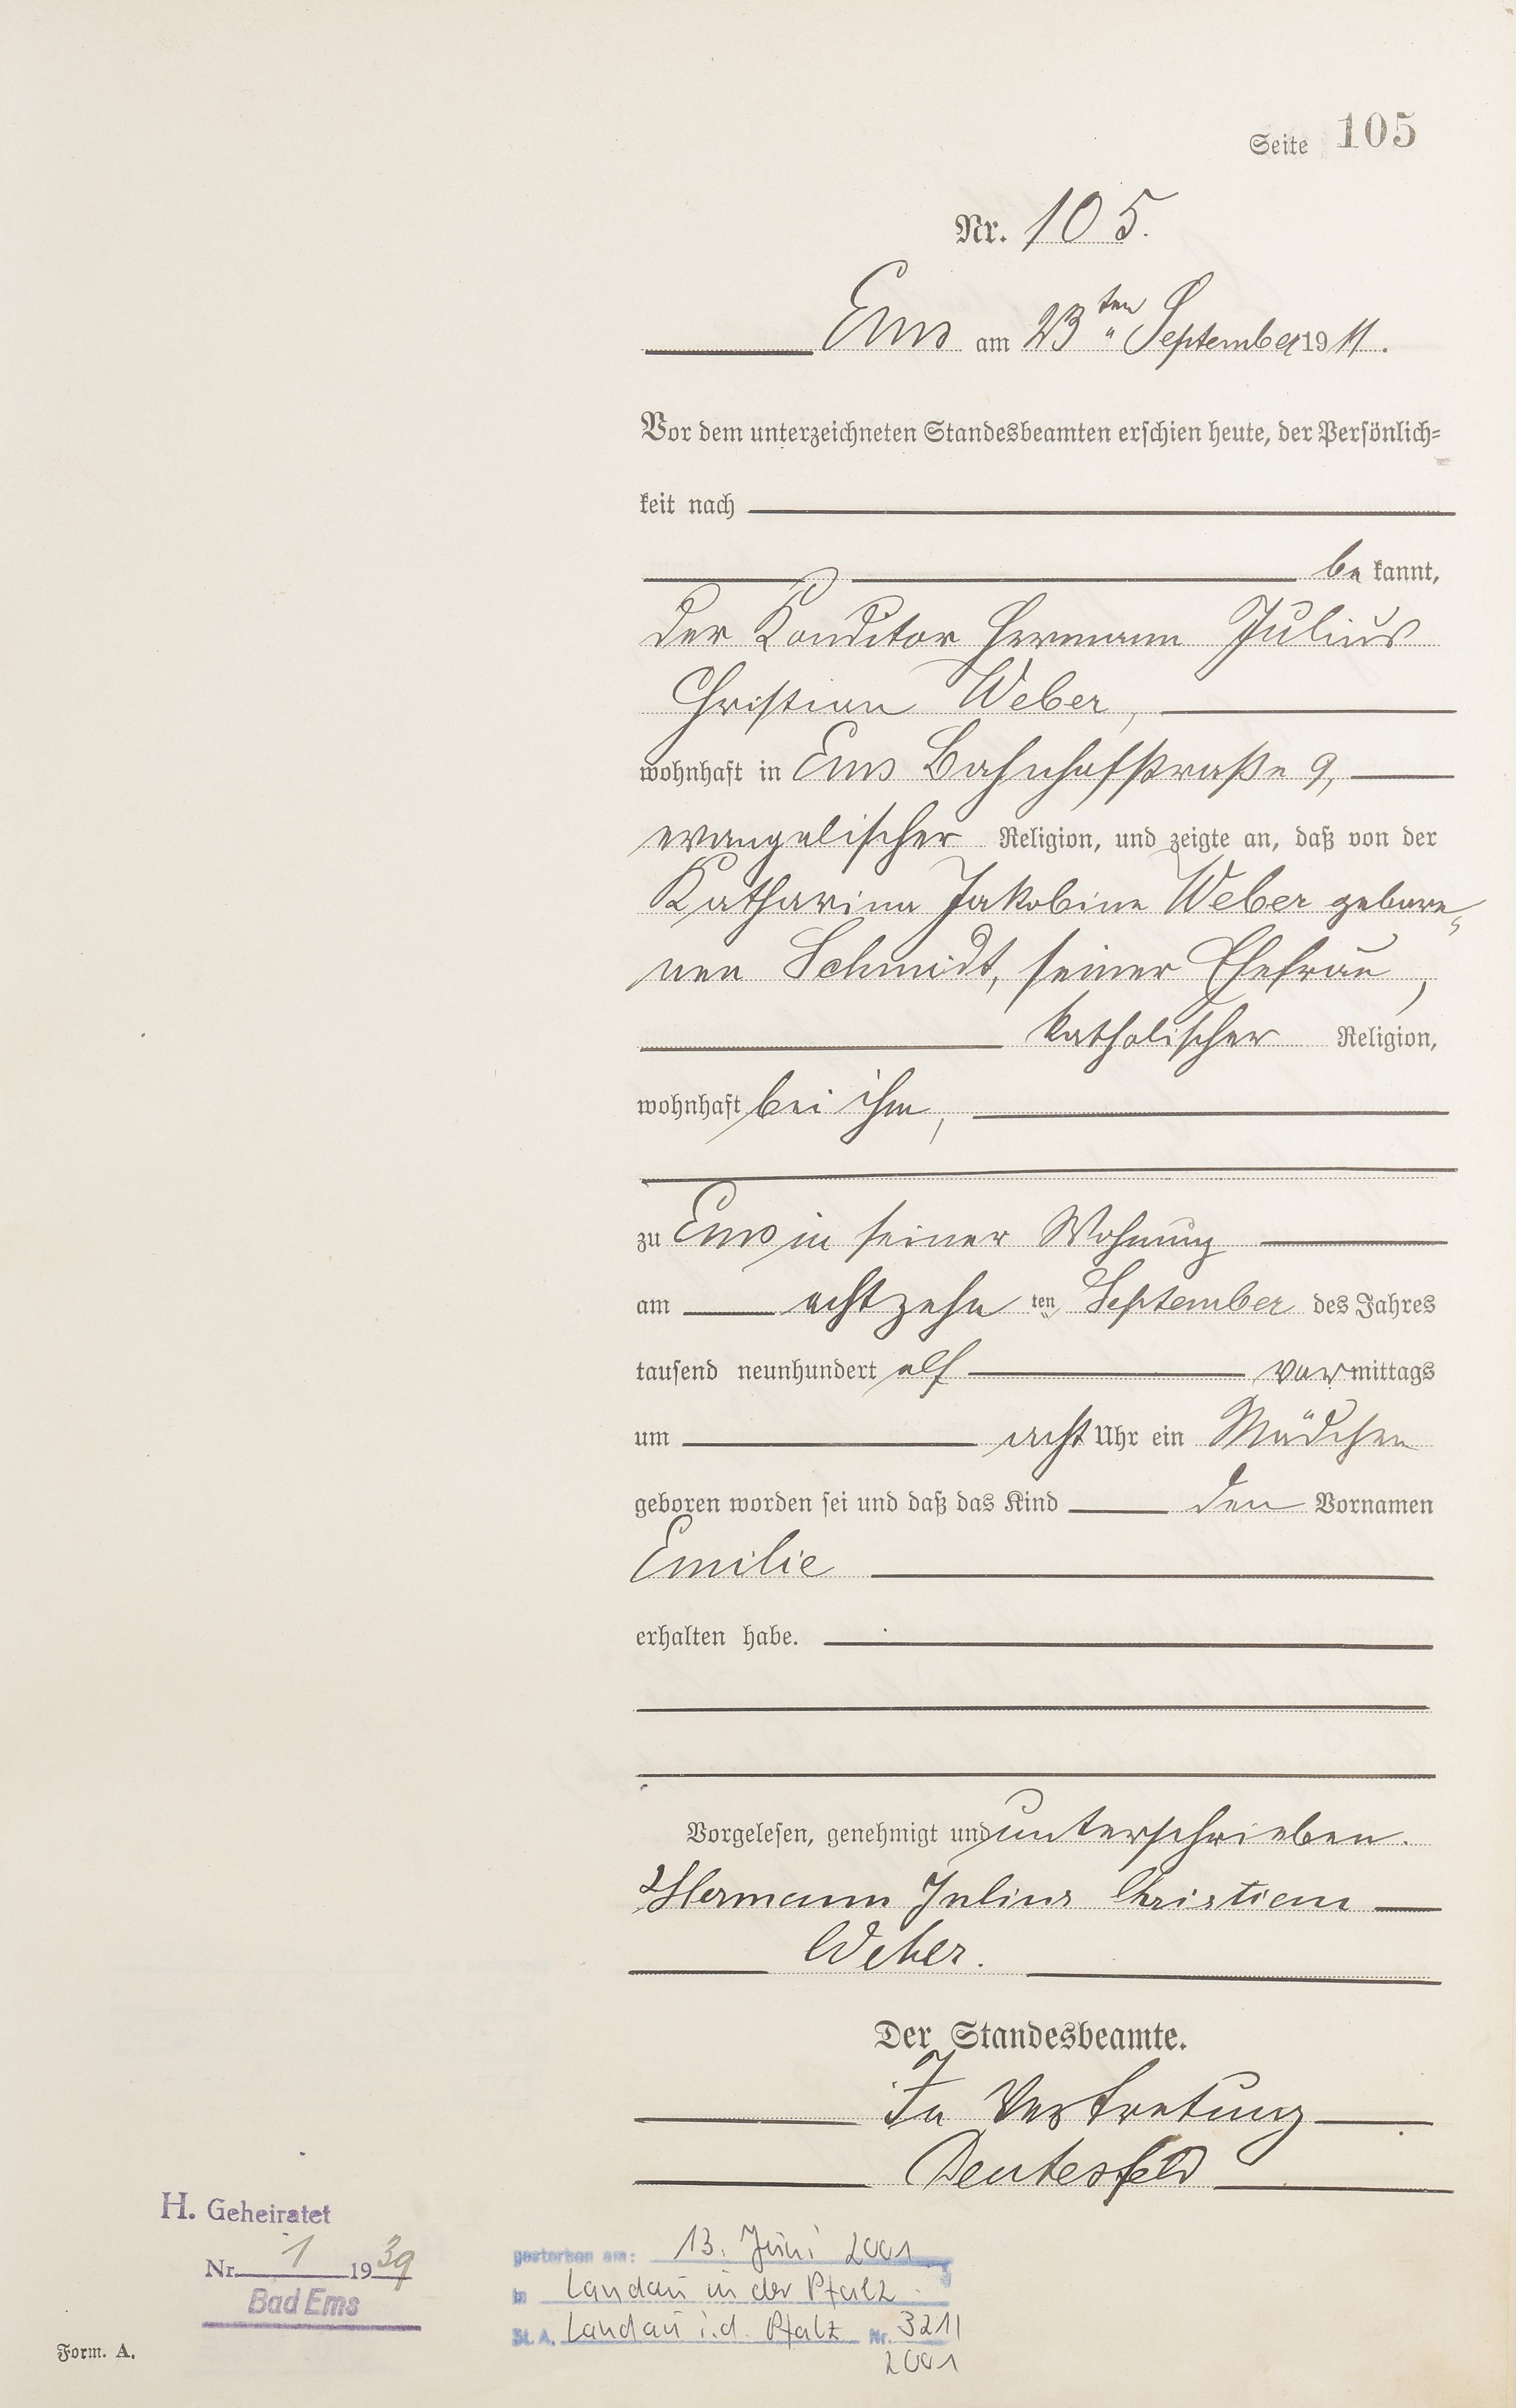 Seite 105
Nr. 105.
Ems am 23ten September 1911.
Vor dem unterzeichneten Standesbeamten erschien heute, der Persönlich-
keit nach
bekannt,
der Konditor Hermann Julius
Christian Weber,
wohnhaft in Ems Bahnhofstraße 9,
evangelischer Religion, und zeigte an, daß von der
Katharina Jakobine Weber gebore-
nen Schmidt, seiner Ehefrau,
katholischer Religion,
wohnhaft bei ihm,
zu Ems in seiner Wohnung
am achtzehn ten September des Jahres
tausend neunhundert elf vormittags
um acht Uhr ein Mädchen
geboren worden sei und daß das Kind den Vornamen
Emilie
erhalten habe.
Vorgelesen, genehmigt und unterschrieben.
Hermann Julius Christian
Weber.
Der Standesbeamte.
In Vertretung
Deutesfeld
H. Geheiratet
Nr. 1 1939
Bad Ems
gestorben am: 13. Juni 2001
in Landau in der Pfalz
St. A. Landau i. d. Pfalz Nr. 321/
2001
Form. A.